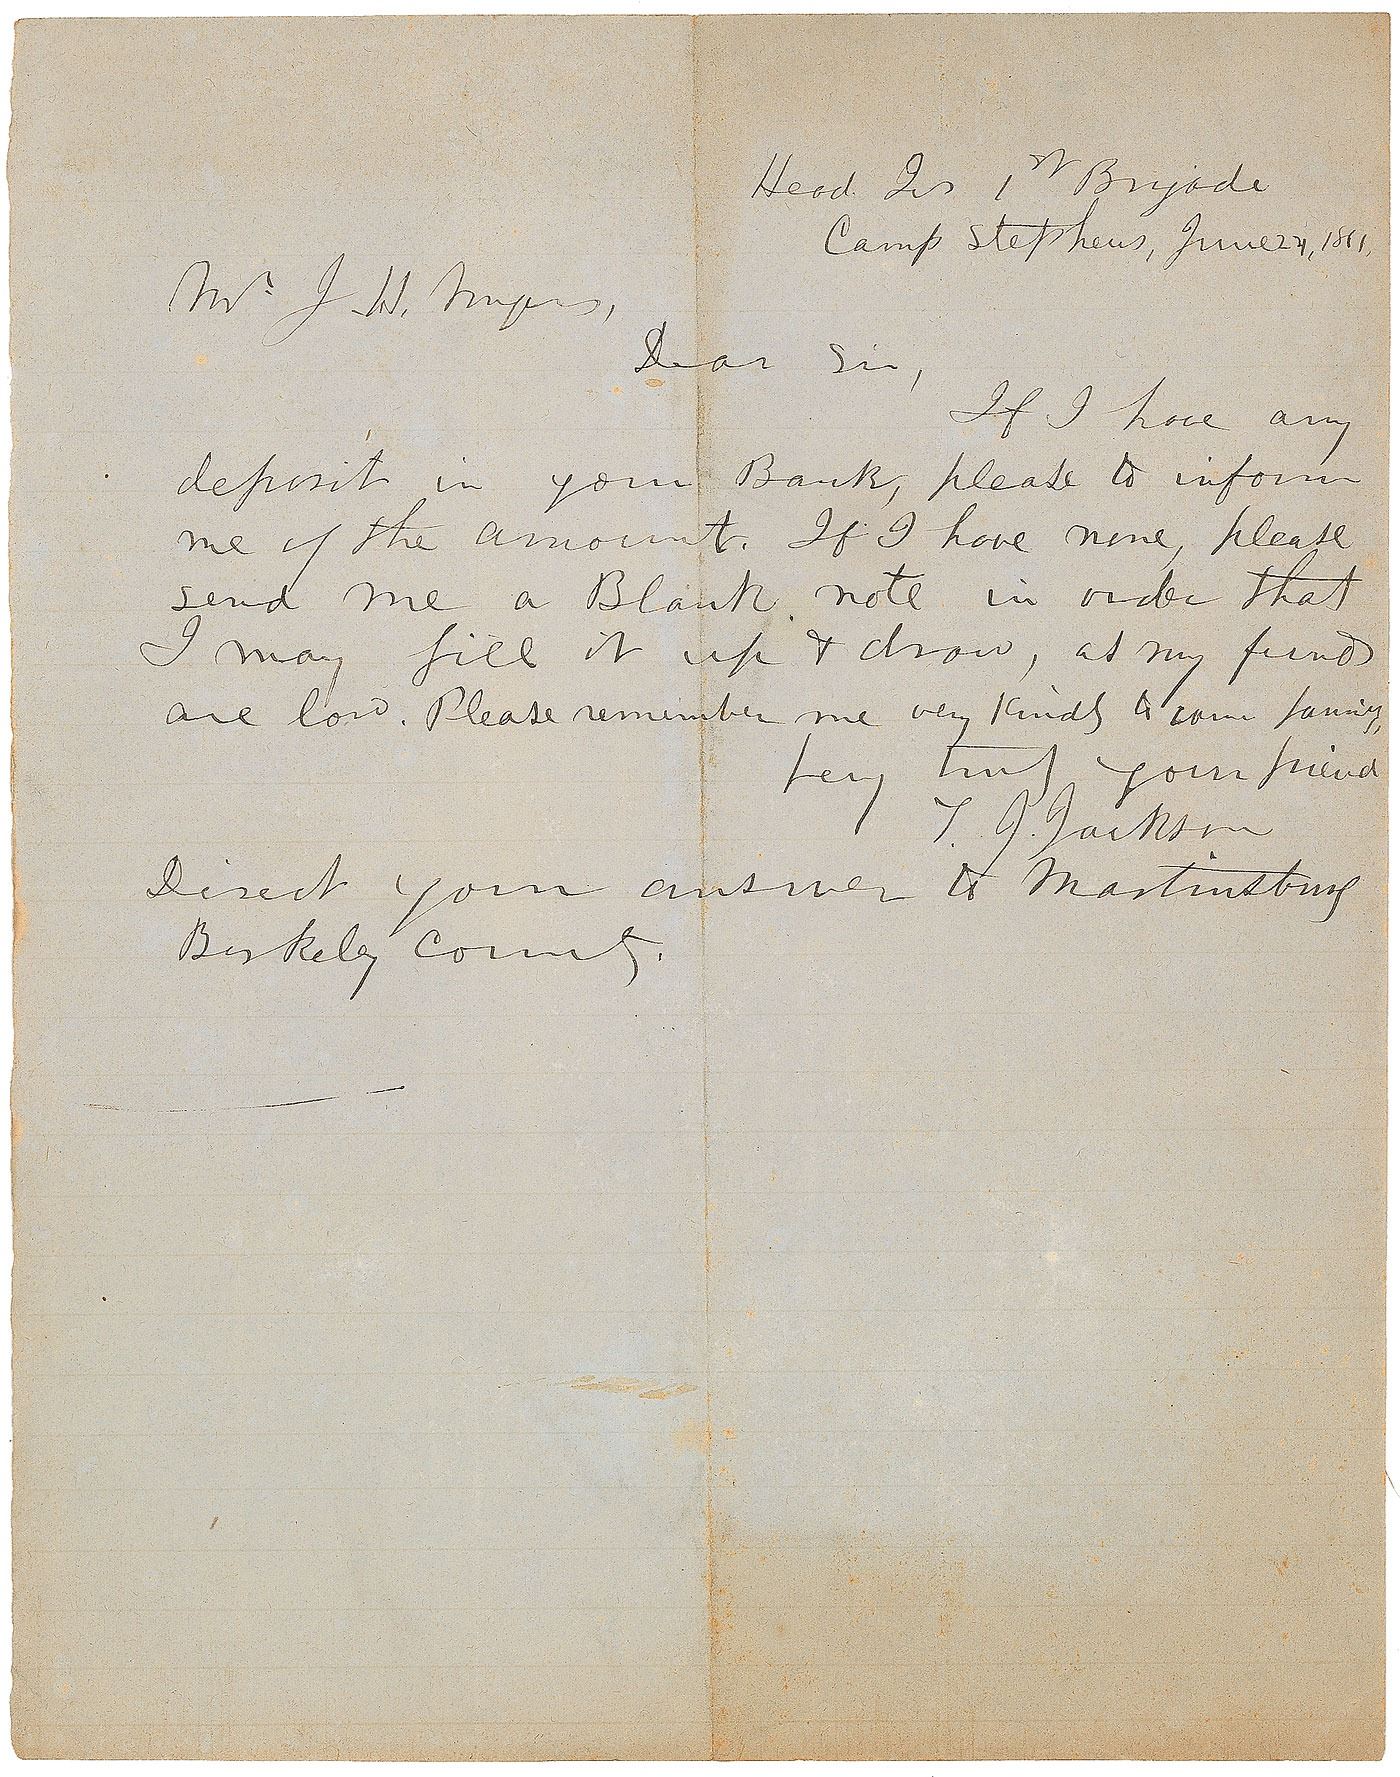 Head Qrs 1st Brigade
Camp Stephens, June 24, 1861,
Mr. J. H. Myers,
Dear Sir,
If I have any
deposit in your Bank, please to inform
me of the amount. If I have none, please
send me a Blank note in order that
I may fill it up & draw, as my funds
are low. Please remember me very kindly to your family,
Very truly your friend
T. J. Jackson
Direct your answer to Martinsburg
Berkeley County.